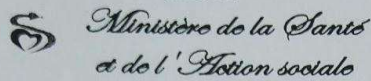 Ministère de la Santé
et de l'Action sociale